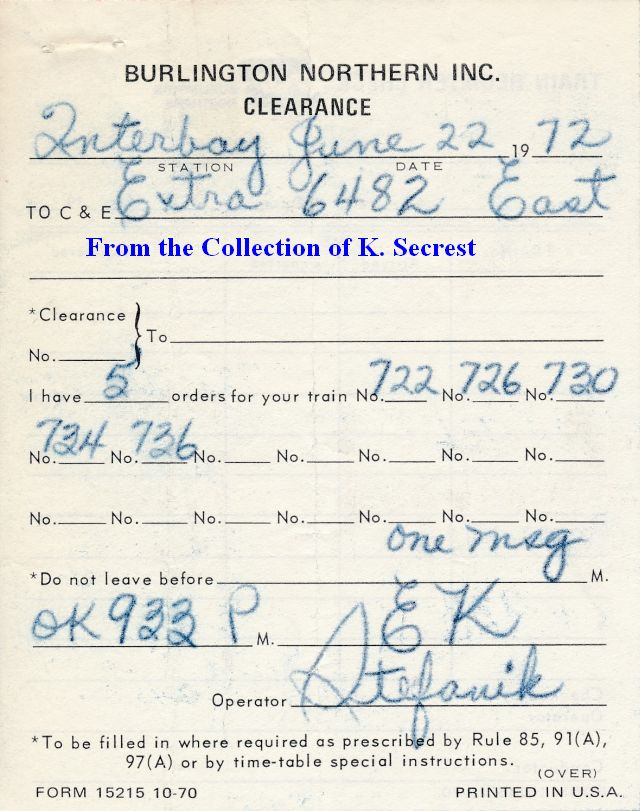 BURLINGTON NORTHERN INC.
CLEARANCE
Interbay June 22 1972
STATION DATE
TO C & E Extra 6482 East
From the Collection of K. Secrest
*Clearance
No. } To
I have 5 orders for your train No. 722 No. 726 No. 730
No. 734 No. 736 No. No. No. No. No.
No. No. No. No. No. No. No.
one msg
*Do not leave before M.
OK 933 P M. EK
Operator Stefanik
*To be filled in where required as prescribed by Rule 85, 91(A),
97(A) or by time-table special instructions.
(OVER)
FORM 15215 10-70 PRINTED IN U.S.A.